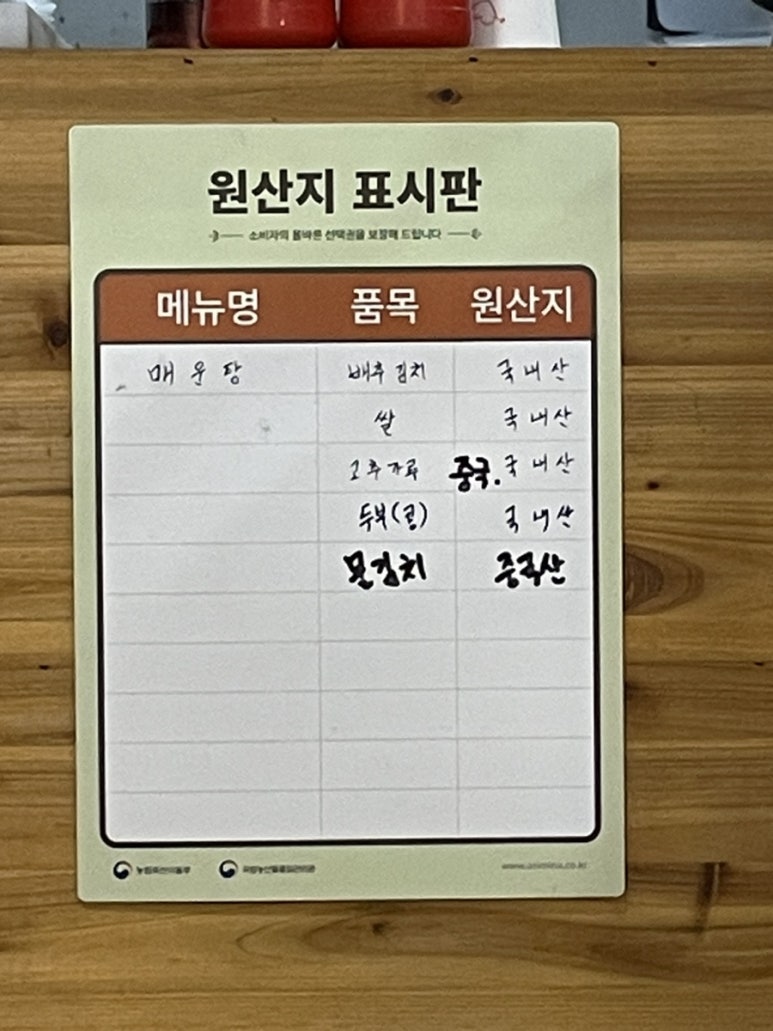 원산지 표시판
소비자의 올바른 선택권을 보장해 드립니다
메뉴명 품목 원산지
매운탕 배추김치 국내산
쌀 국내산
고추가루 중국. 국내산
두부(콩) 국내산
묻김치 중국산
농림축산식품부 국립농산물품질관리원